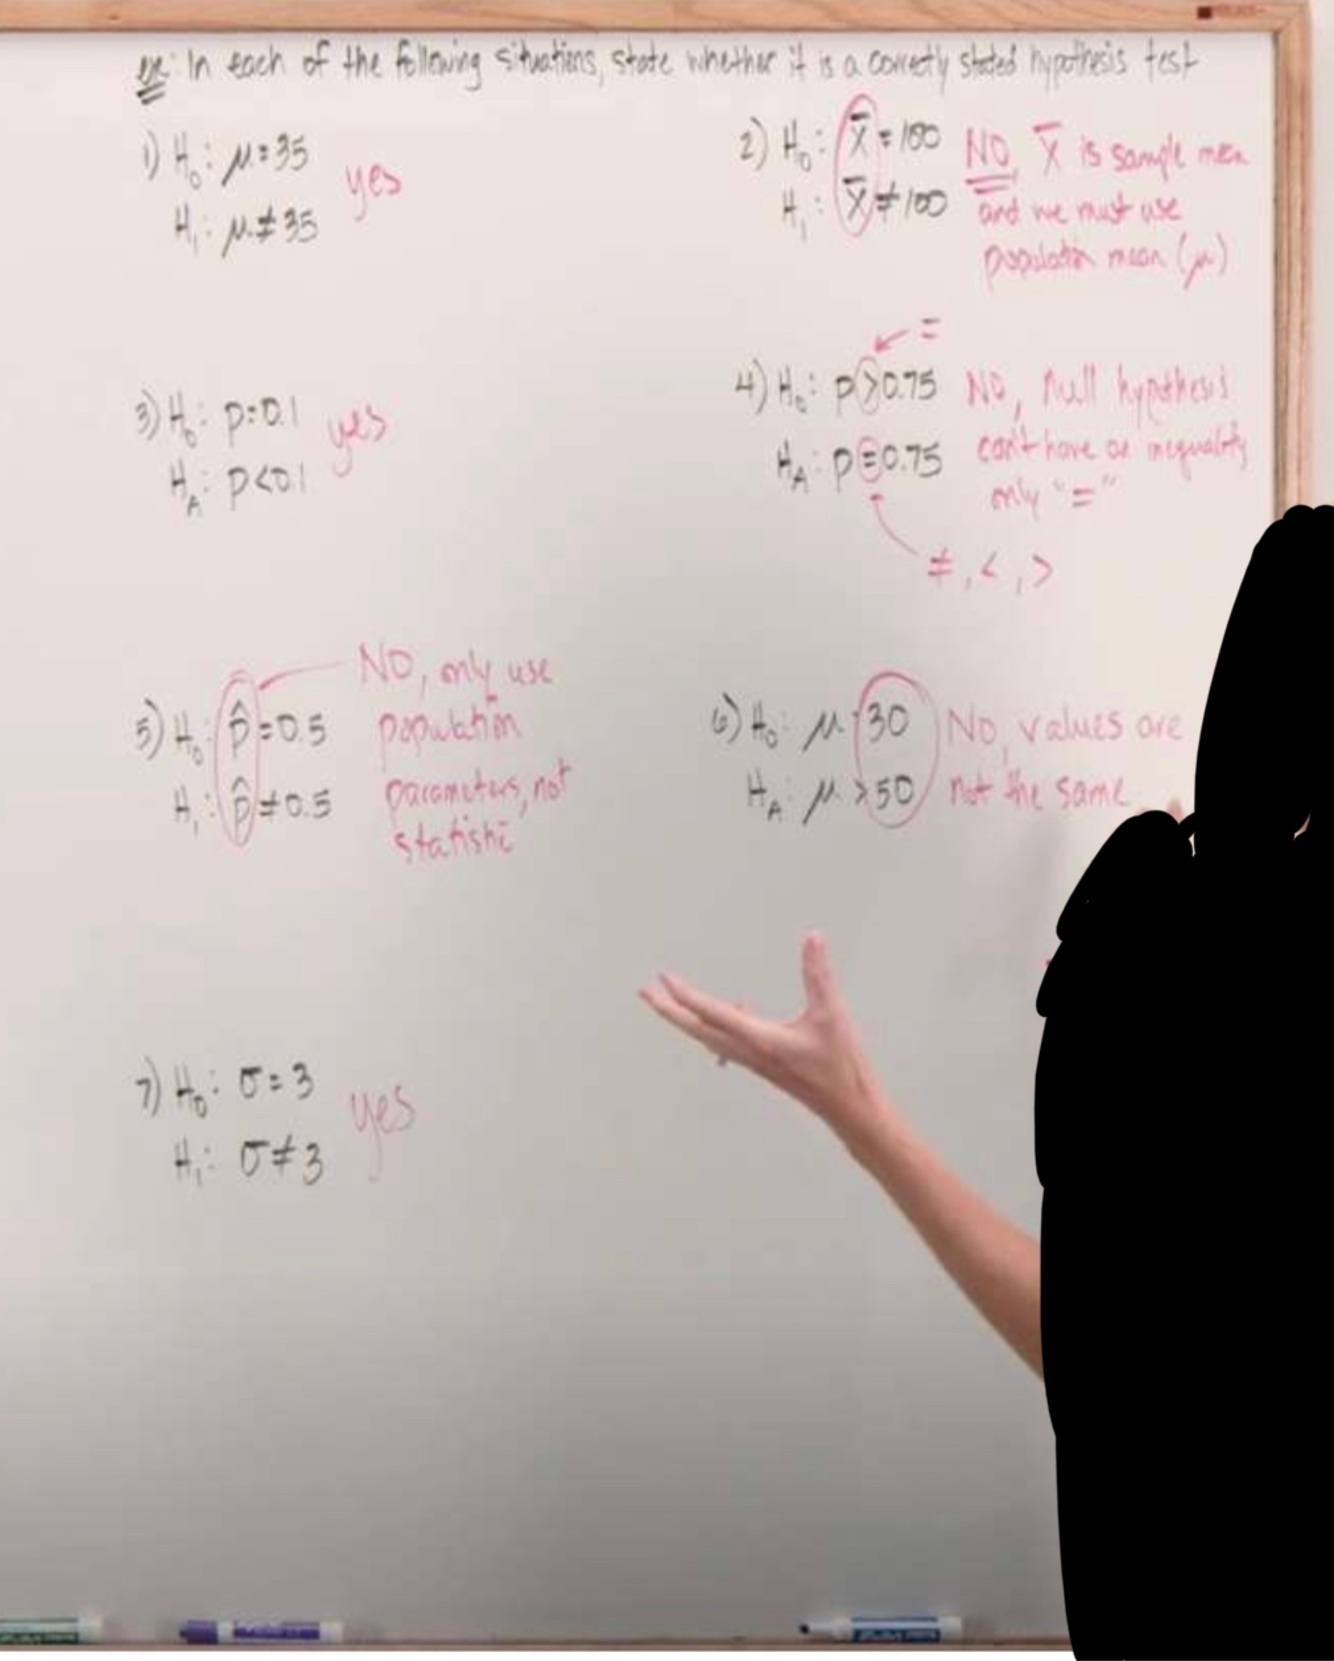 ex: In each of the following situations, state whether it is a correctly stated hypothesis test
1) H₀: μ = 35
H₁: μ ≠ 35
yes
2) H₀: x̄ = 100
H₁: x̄ ≠ 100
NO, x̄ is sample mean
and we must use
population mean (μ)
3) H₀: p = 0.1
H_A: p < 0.1
yes
=
4) H₀: p > 0.75
H_A: p = 0.75
NO, null hypothesis
can't have an inequality
only "="
≠, <, >
5) H₀: p̂ = 0.5
H₁: p̂ ≠ 0.5
NO, only use
population
parameters, not
statistic
6) H₀: μ = 30
H_A: μ > 50
No, values are
not the same
7) H₀: σ = 3
H₁: σ ≠ 3
yes